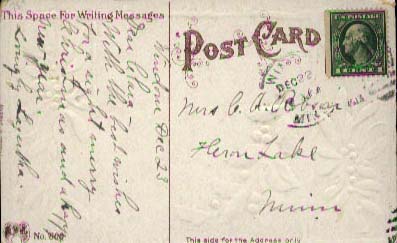 This Space For Writing Messages
Windom Dec 23
Dear
With the best wishes
for a right merry
Christmas and a happy
new year.
POST CARD
DEC 23
Mrs C. A.
Heron Lake
Minn
No. 600
This side for the Address only